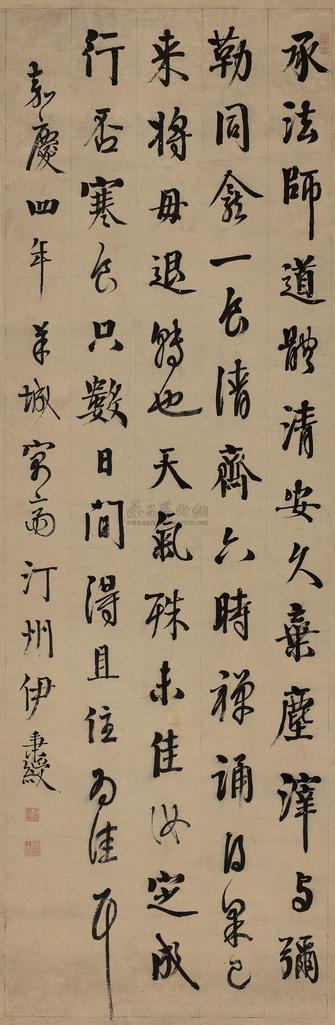 承法師道體清安久棄塵滓与彌
勒同龕一食清齋六時禅誦得果已
来將毋退轉也天氣殊未佳汝定成
行否寒食只數日間得且住為佳耳
嘉慶四年羊城寓齋汀州伊秉綬